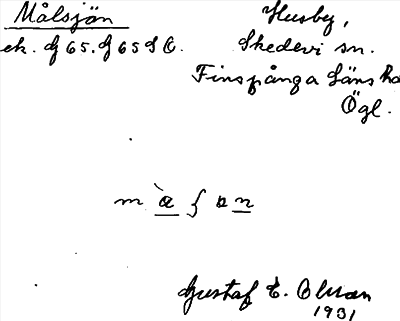 Målsjön
Husby,
ek. bl 65. bl 65 S O.
Skedevi sn.
Finspånga läns hd
Ögl.
Gustaf E. Olsson
1931